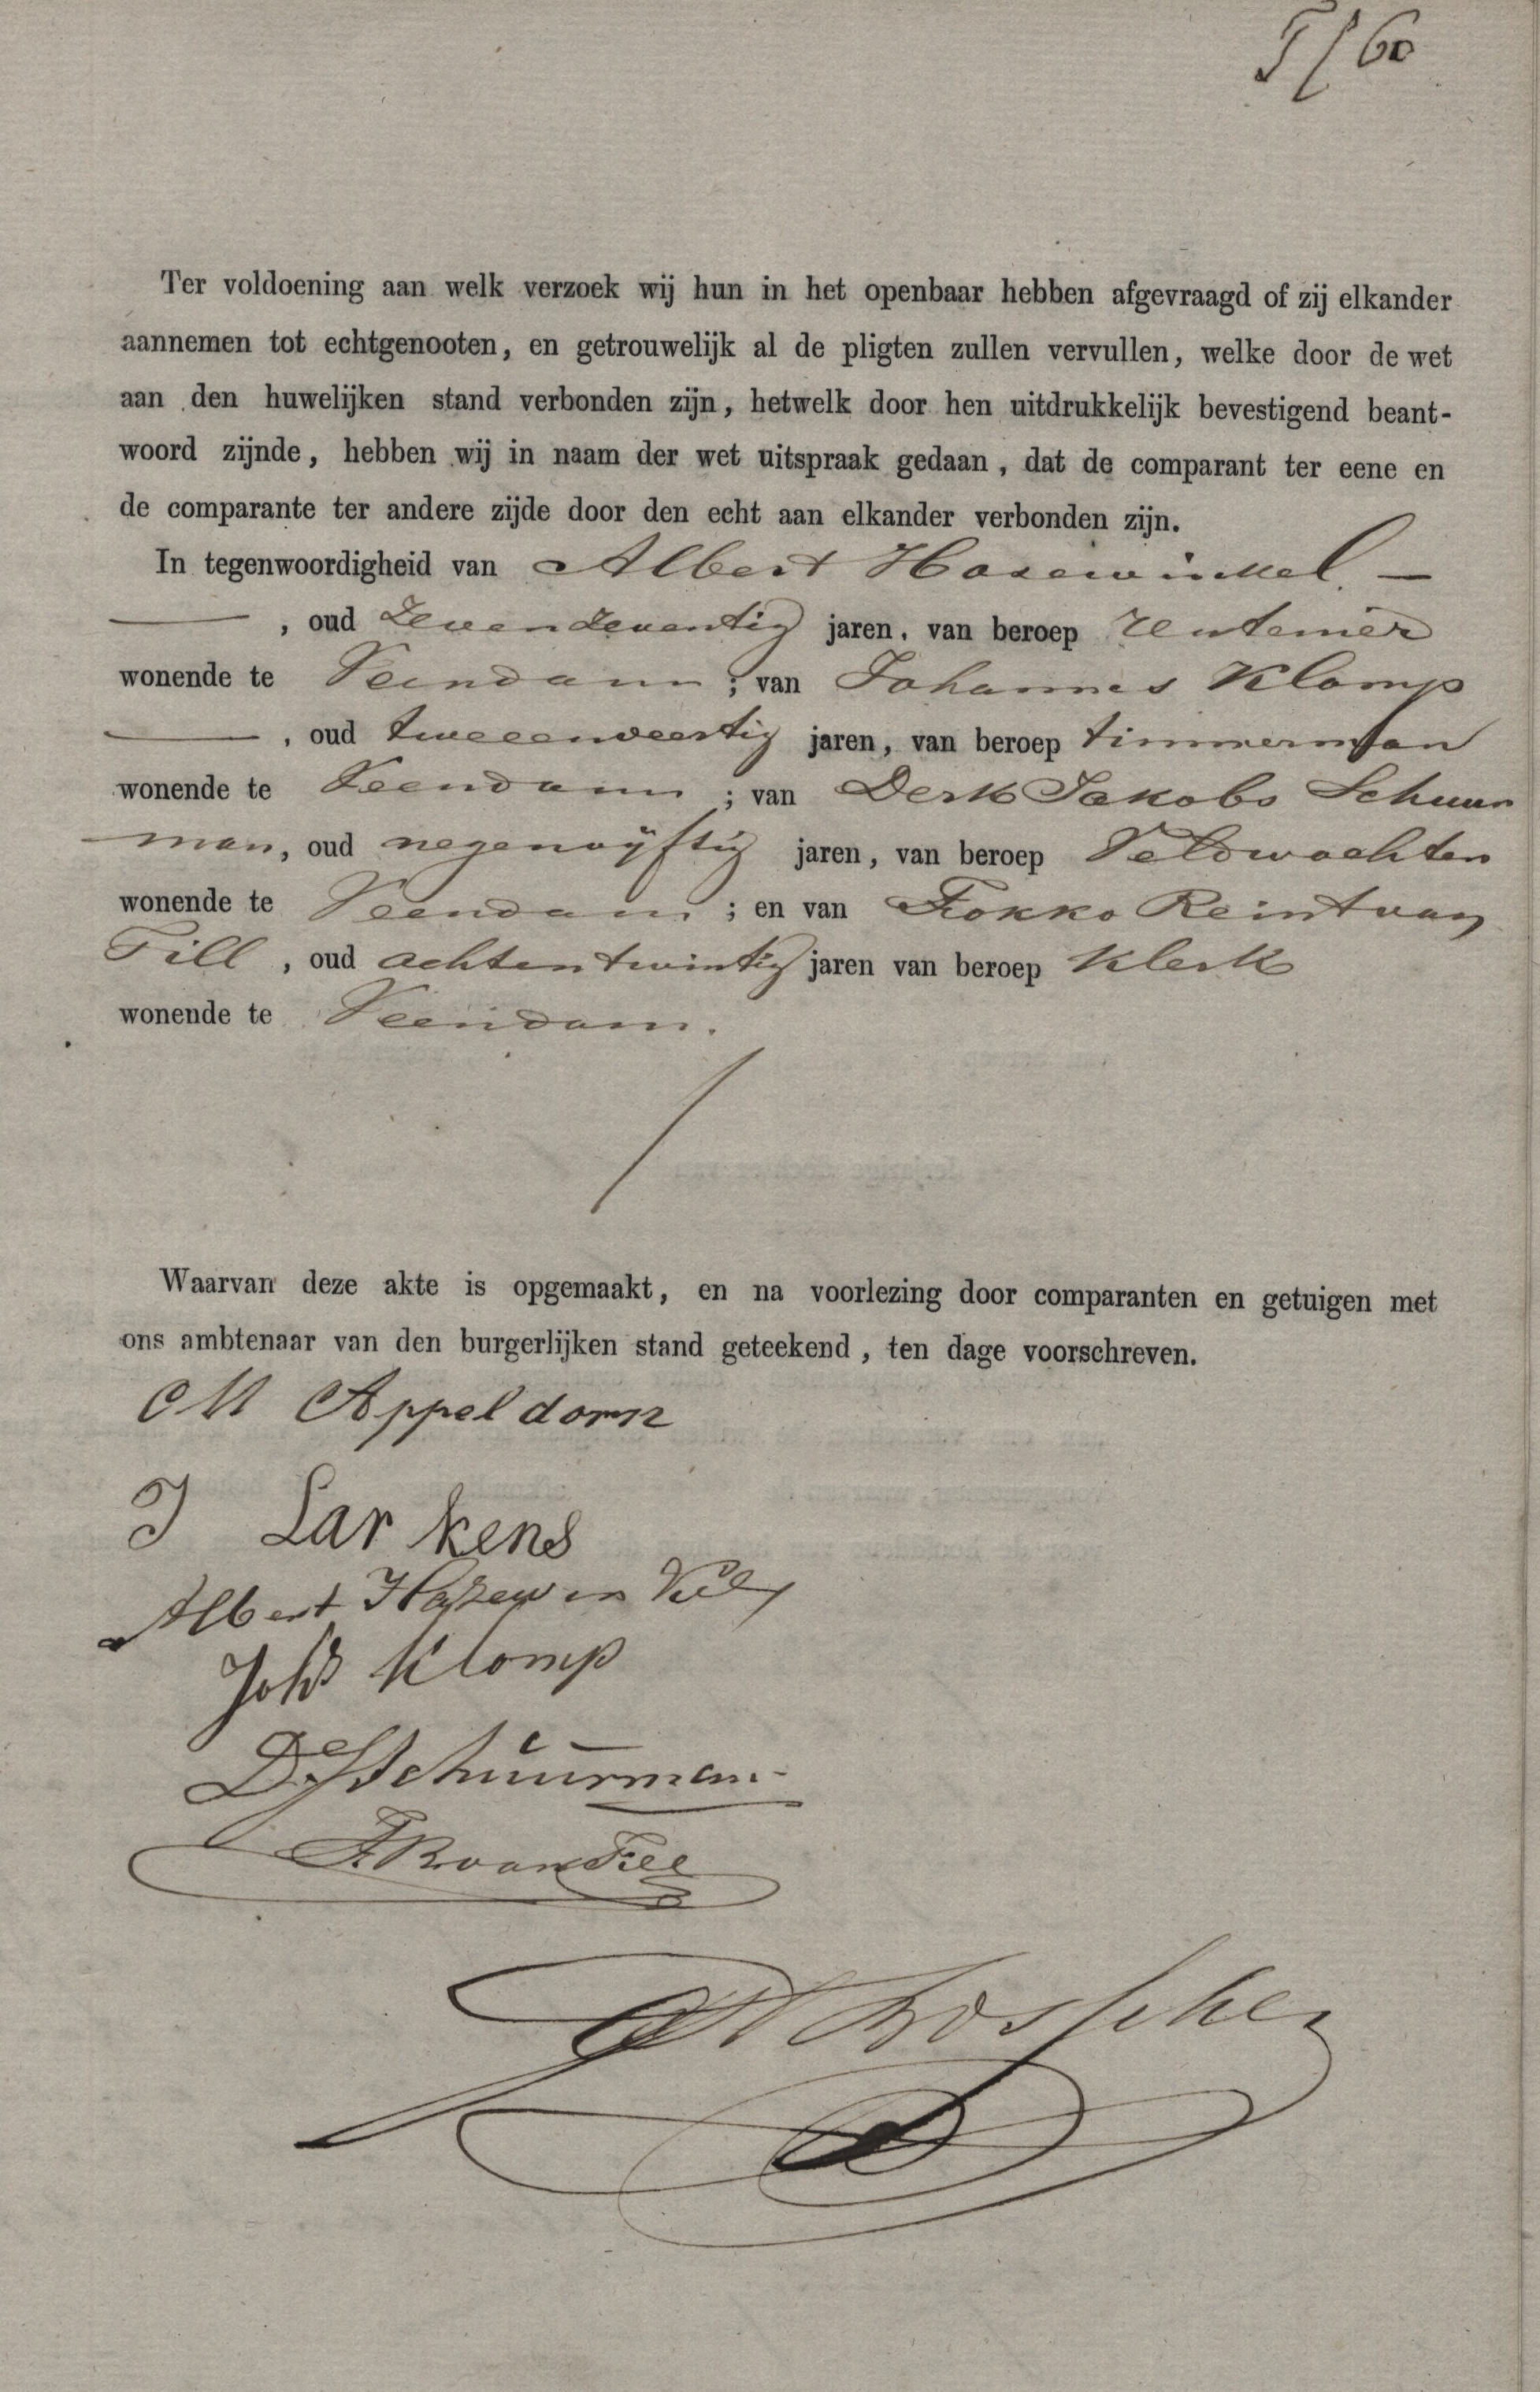 60
Ter voldoening aan welk verzoek wij hun in het openbaar hebben afgevraagd of zij elkander
aannemen tot echtgenooten, en getrouwelijk al de pligten zullen vervullen, welke door de wet
aan den huwelijken stand verbonden zijn, hetwelk door hen uitdrukkelijk bevestigend beant-
woord zijnde, hebben wij in naam der wet uitspraak gedaan, dat de comparant ter eene en
de comparante ter andere zijde door den echt aan elkander verbonden zijn.
In tegenwoordigheid van Albert Hazewinkel —
—, oud zevenzeventig jaren, van beroep rentenier
wonende te Veendam ; van Johannes Klomp
—, oud tweeenveertig jaren, van beroep timmerman
wonende te Veendam ; van Derk Jakobs Schuur
man, oud negenvijftig jaren, van beroep Veldwachter
wonende te Veendam ; en van Fokko Reint van
Till, oud achtentwintig jaren van beroep klerk
wonende te Veendam.
Waarvan deze akte is opgemaakt, en na voorlezing door comparanten en getuigen met
ons ambtenaar van den burgerlijken stand geteekend, ten dage voorschreven.
M Appeldorn
J Larkens
Albert Hazewinkel
Johs Klomp
DJSchuurman
F.R. van Till